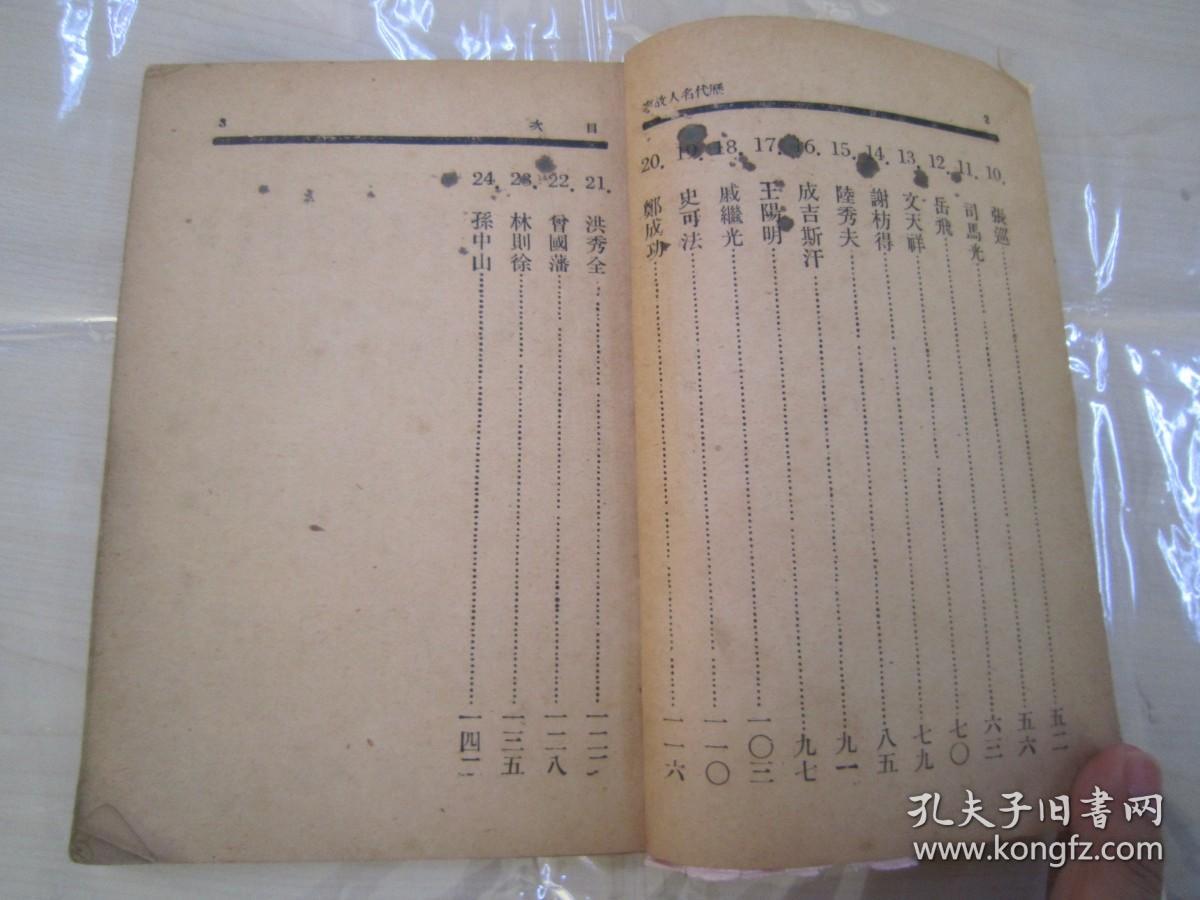 2
歷代名人故事
10. 張巡……五二
11. 司馬光……五六
12. 岳飛……六三
13. 文天祥……七〇
14. 謝枋得……七九
15. 陸秀夫……八五
16. 成吉斯汗……九一
17. 王陽明……九七
18. 戚繼光……一〇三
19. 史可法……一一〇
20. 鄭成功……一一六
目次
3
21. 洪秀全……一二二
22. 曾國藩……一二八
23. 林則徐……一三五
24. 孫中山……一四二
孔夫子旧书网
www.kongfz.com